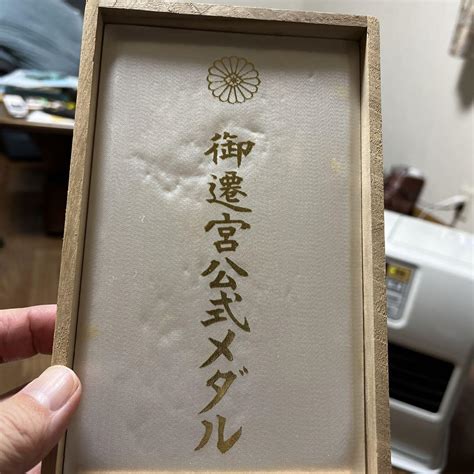 御遷宮公式メダル